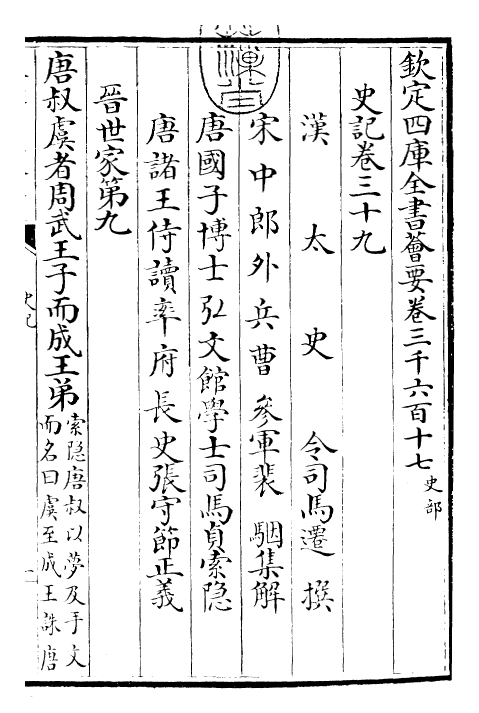 欽定四庫全書薈要卷三千六百十七史部
史記卷三十九
漢太史令司馬遷撰
宋中郎外兵曹參軍裴駰集解
唐國子博士弘文館學士司馬貞索隱
唐諸王侍讀率府長史張守節正義
晉世家第九
唐叔虞者周武王子而成王弟
索隱唐叔以夢及手文
而名曰虞至成王誅唐
史記